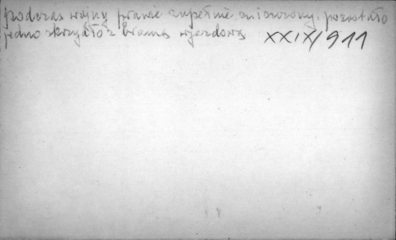 podczas wojny prawie zupełnie zniszczony, pozostało
jedno skrzydło z bramą wjezdową XXIX/911